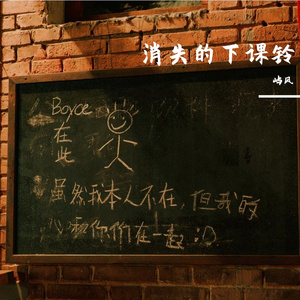 消失的下课铃
屿风
Boyce
在
此
虽然我本人不在，但我的
心和你们在一起 :D